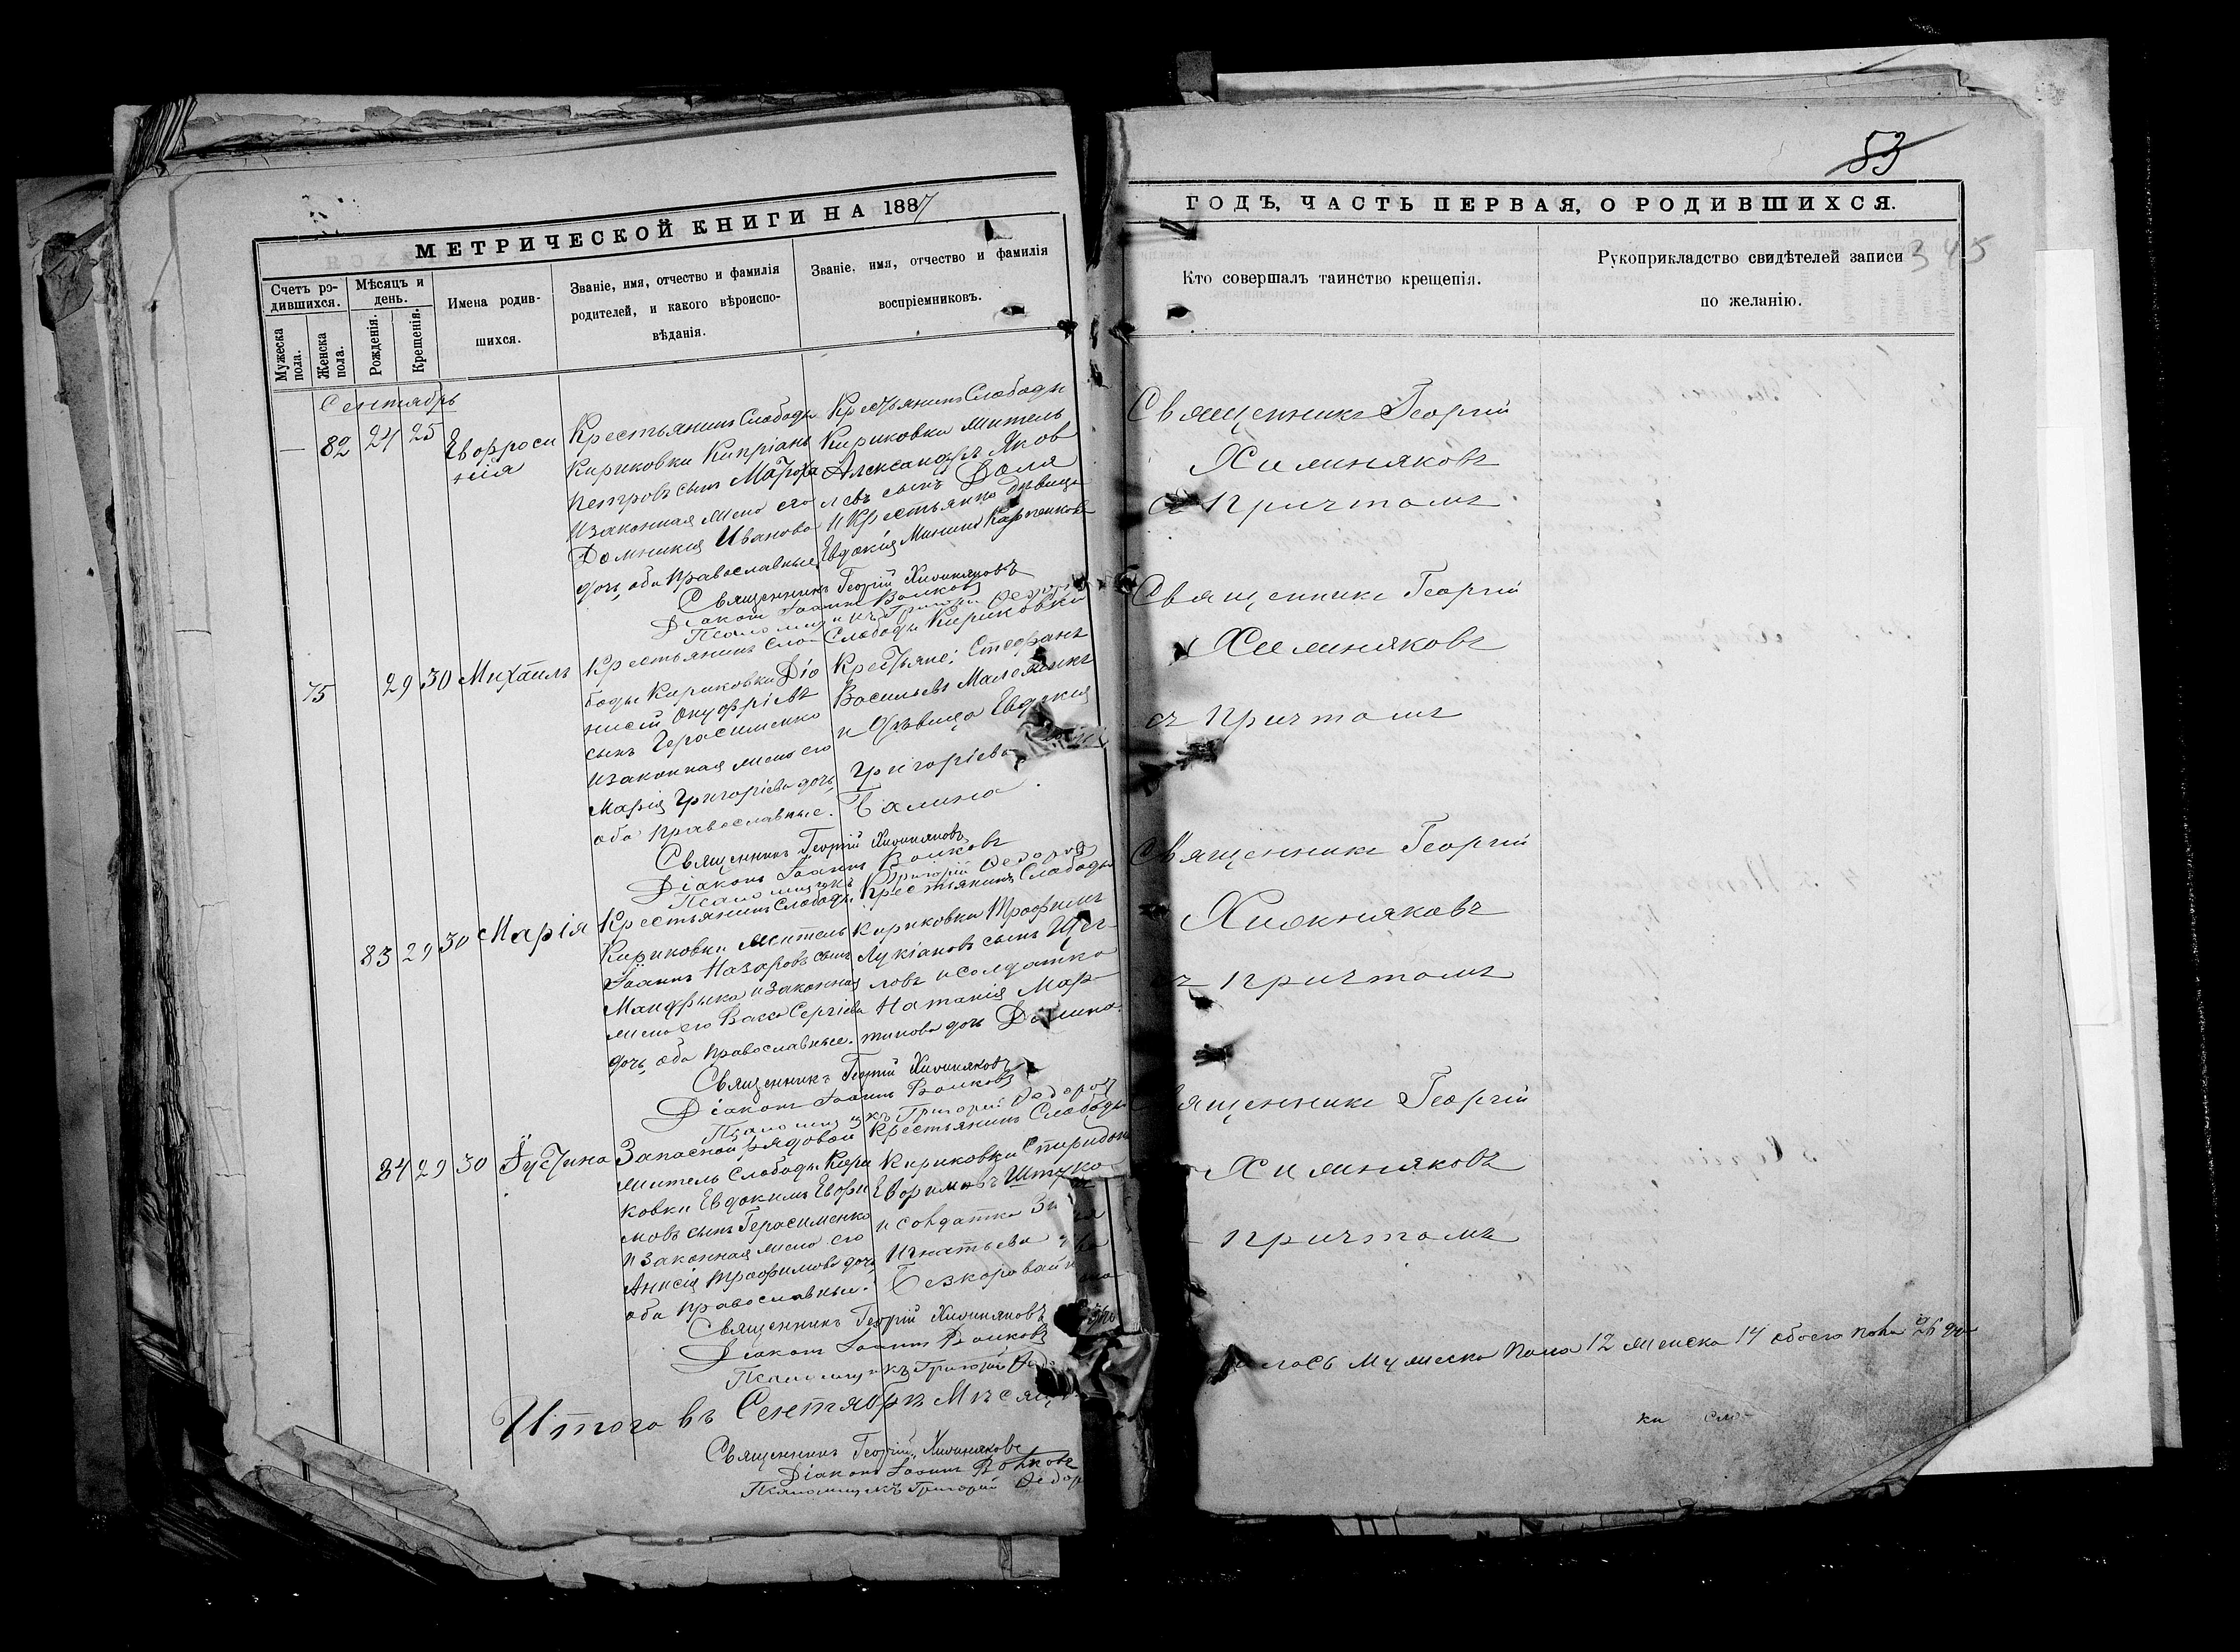 МЕТРИЧЕСКОЙ КНИГИ НА 1887
Счетъ ро-
дившихся.
Мужеска
пола.
Женска
пола.
Мѣсяцъ и
день.
Рожденія.
Крещенія.
Имена родив-
шихся.
Званіе, имя, отчество и фамилія
родителей, и какого вѣроиспо-
вѣданія.
Званіе, имя, отчество и фамилія
воспріемниковъ.
Сентябрь
— 82 24 25
Евфроси
нія
Крестьянинъ Слободы
Кириковки Кипріанъ
Петровъ сынъ
и законная жена его
Домникія Иванова
дочь, оба православные
Крестьянинъ Слободы
Кириковки житель
Александръ Яков
левъ сынъ Доля
и Крестьянка дѣвица
Евдокія Минина
Священникъ Георгій Хижняковъ
Діаконъ Іоаннъ Волковъ
Псаломщикъ Григорій Ѳедоров
75 29 30
Михаилъ
Крестьянинъ Сло
боды Кириковки Діо
нисій Онуфріевъ
сынъ Герасименко
и законная жена его
Марія Григоріева дочь,
оба православные.
Слободы Кириковки
Крестьяне: Стефанъ
Васильевъ
и дѣвица Евдокія
Григоріева
Галина.
Священникъ Георгій Хижняковъ
Діаконъ Іоаннъ Волковъ
Псаломщикъ Григорій Ѳедоров
83 29 30
Марія
Крестьянинъ Слободы
Кириковки житель
Іоаннъ Назаровъ сынъ
Мандрыка и законная
жена его Васса Сергіева
дочь, оба православные.
Крестьянинъ Слободы
Кириковки Трофимъ
Лукіановъ сынъ Щег-
ловъ и солдатка
Наталія Мар-
тинова дочь
Священникъ Георгій Хижняковъ
Діаконъ Іоаннъ Волковъ
Псаломщикъ Григорій Ѳедоров
84 29 30
Іустина
Запасной рядовой
житель Слободы Кири
ковки Евдокимъ Евфи
мовъ сынъ Герасименко
и законная жена его
Анисія Трофимова дочь,
оба православные.
Крестьянинъ Слободы
Кириковки Спиридонъ
и солдатка
Игнатьева
Священникъ Георгій Хижняковъ
Діаконъ Іоаннъ Волковъ
Псаломщикъ Григорій Ѳедо
Итого въ Сентябрѣ Мѣсяц
Священникъ Георгій Хижняковъ
Діаконъ Іоаннъ Волковъ
Псаломщикъ Григорій Ѳедор
83
ГОДЪ, ЧАСТЬ ПЕРВАЯ, О РОДИВШИХСЯ.
345
Кто совершалъ таинство крещенія.
Рукоприкладство свидѣтелей записи
по желанію.
Священникъ Георгій
Хижняковъ
съ причтомъ
Священникъ Георгій
Хижняковъ
съ причтомъ
Священникъ Георгій
Хижняковъ
съ причтомъ
ященникъ Георгій
Хижняковъ
причтомъ
лось мужеска пола 12 женска 14 обоего пола 26